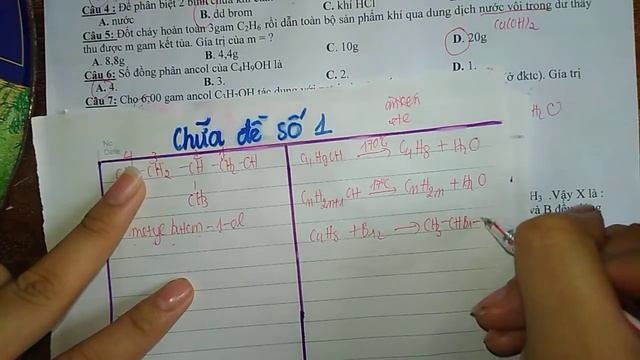 Câu 4 : Để phân biệt 2 bình chứa khí
A. nước B. dd brom C. khí HCl
Câu 5: Đốt cháy hoàn toàn 3gam C₂H₆ rồi dẫn toàn bộ sản phẩm khí qua dung dịch nước vôi trong dư thấy
Ca(OH)₂
thu được m gam kết tủa. Gía trị của m = ?
A. 8,8g B. 4,4g C. 10g D. 20g
Câu 6: Số đồng phân ancol của C₄H₉OH là
A. 4. B. 3. C. 2. D. 1.
Câu 7: Cho 6,00 gam ancol C₃H₇OH tác dụng với
ở đktc). Gía trị
No
Date
Chữa đề số 1
H₂O
CH₂ - CH - CH₂ - OH
CH₃
C₄H₉OH 170°C → C₄H₈ + H₂O
CnH2n+1OH 170°C → CnH2n + H₂O
H₃ .Vậy X là :
và B đều
C₄H₈ + Br₂ → CH₃-CHBr-